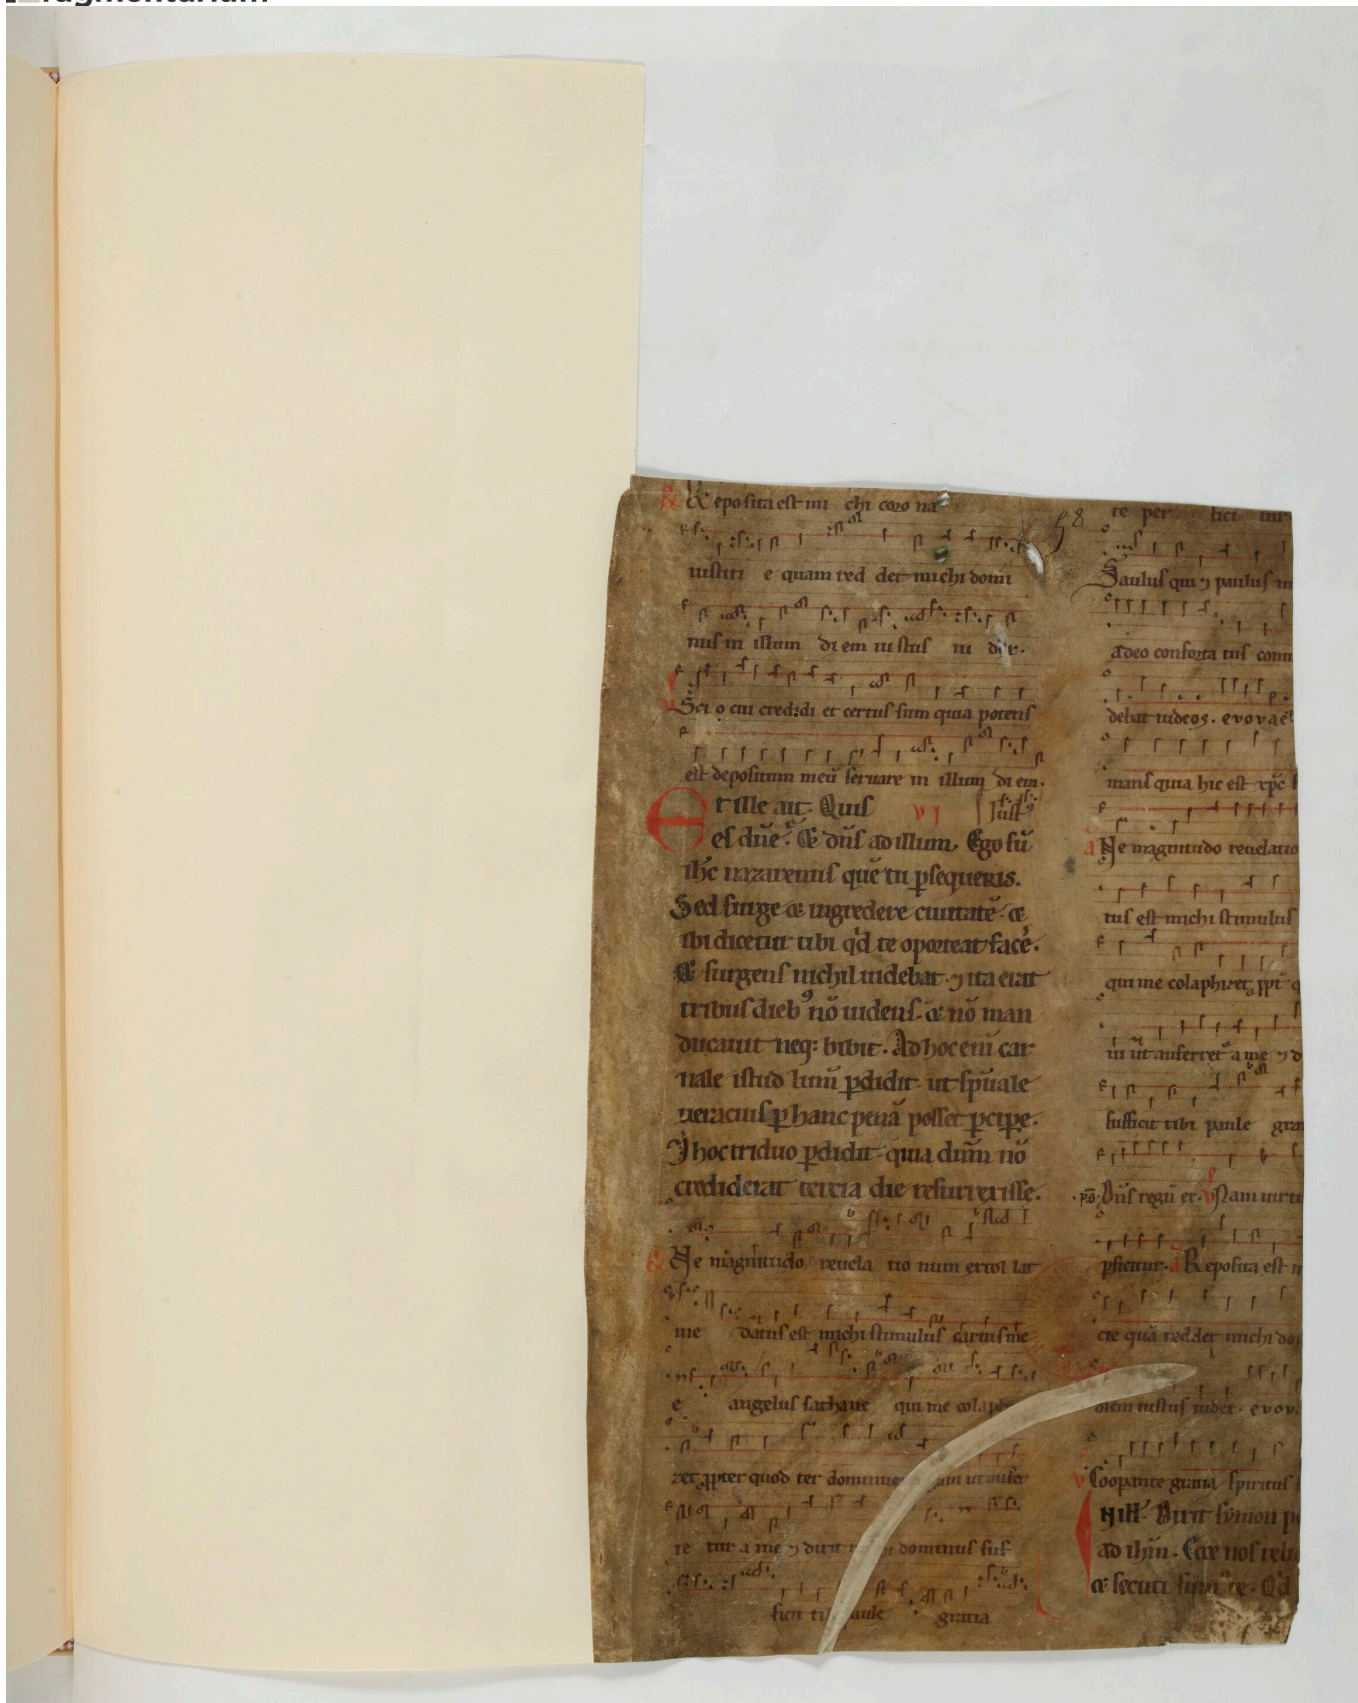 Reposita est mi chi coro na
iusticie quam red det michi domi
nus in illum diem iustus iu dex.
Scio cui credidi et certus sum quia potens
est depositum meū seruare in illum diem.
Et ille ait. Quis vi Iustꝰ
es dn̄e. & dn̄s ad illum. Ego sū
ihc nazarenus quē tu ꝑsequeris.
Sed surge & ingredere ciuitatē &
ibi dicetur tibi qd te oporteat facē.
& surgens nichil uidebat. ⁊ ita erat
tribus diebꝰ nō uidens. & nō man
ducauit neq: bibit. Ad hoc eni car
nale istud lum̄ ꝑdidit ut spūale
ueracius ꝑ hanc penā posset ꝑcipe.
Ī hoc triduo ꝑdidit quia dūm nō
crediderat tercia die resurrexisse.
Ne magnitudo reuela tio num extol lat
me datus est michi stimulus carnis me
e angelus sathane qui me colaph
zet ꝓpter quod ter dominum ut aufer
re tur a me ⁊ dixit dominus suf
ficit ti paule gratia
58
te per fici tur
Saulus qui ⁊ paulus m
adeo conforta tus conu
debat iudeos. evovaē
mans quia hic est xp̄c
a Ne magnitudo reuelatio
tus est michi stimulus
qui me colaphizet ꝓpt̄ q
ut auferret a me ⁊ d
sufficit tibi paule gra
Dn̄s regū er. v Nam uirtu
ꝑficitur. a Reposita est m
cie quā reddet michi do
diem iustus iudex. evov
v Cooꝑante gratia spiritus
Dixit symon p
ad ihm. Ecce nos reli
& secuti sumꝰ te. Qd